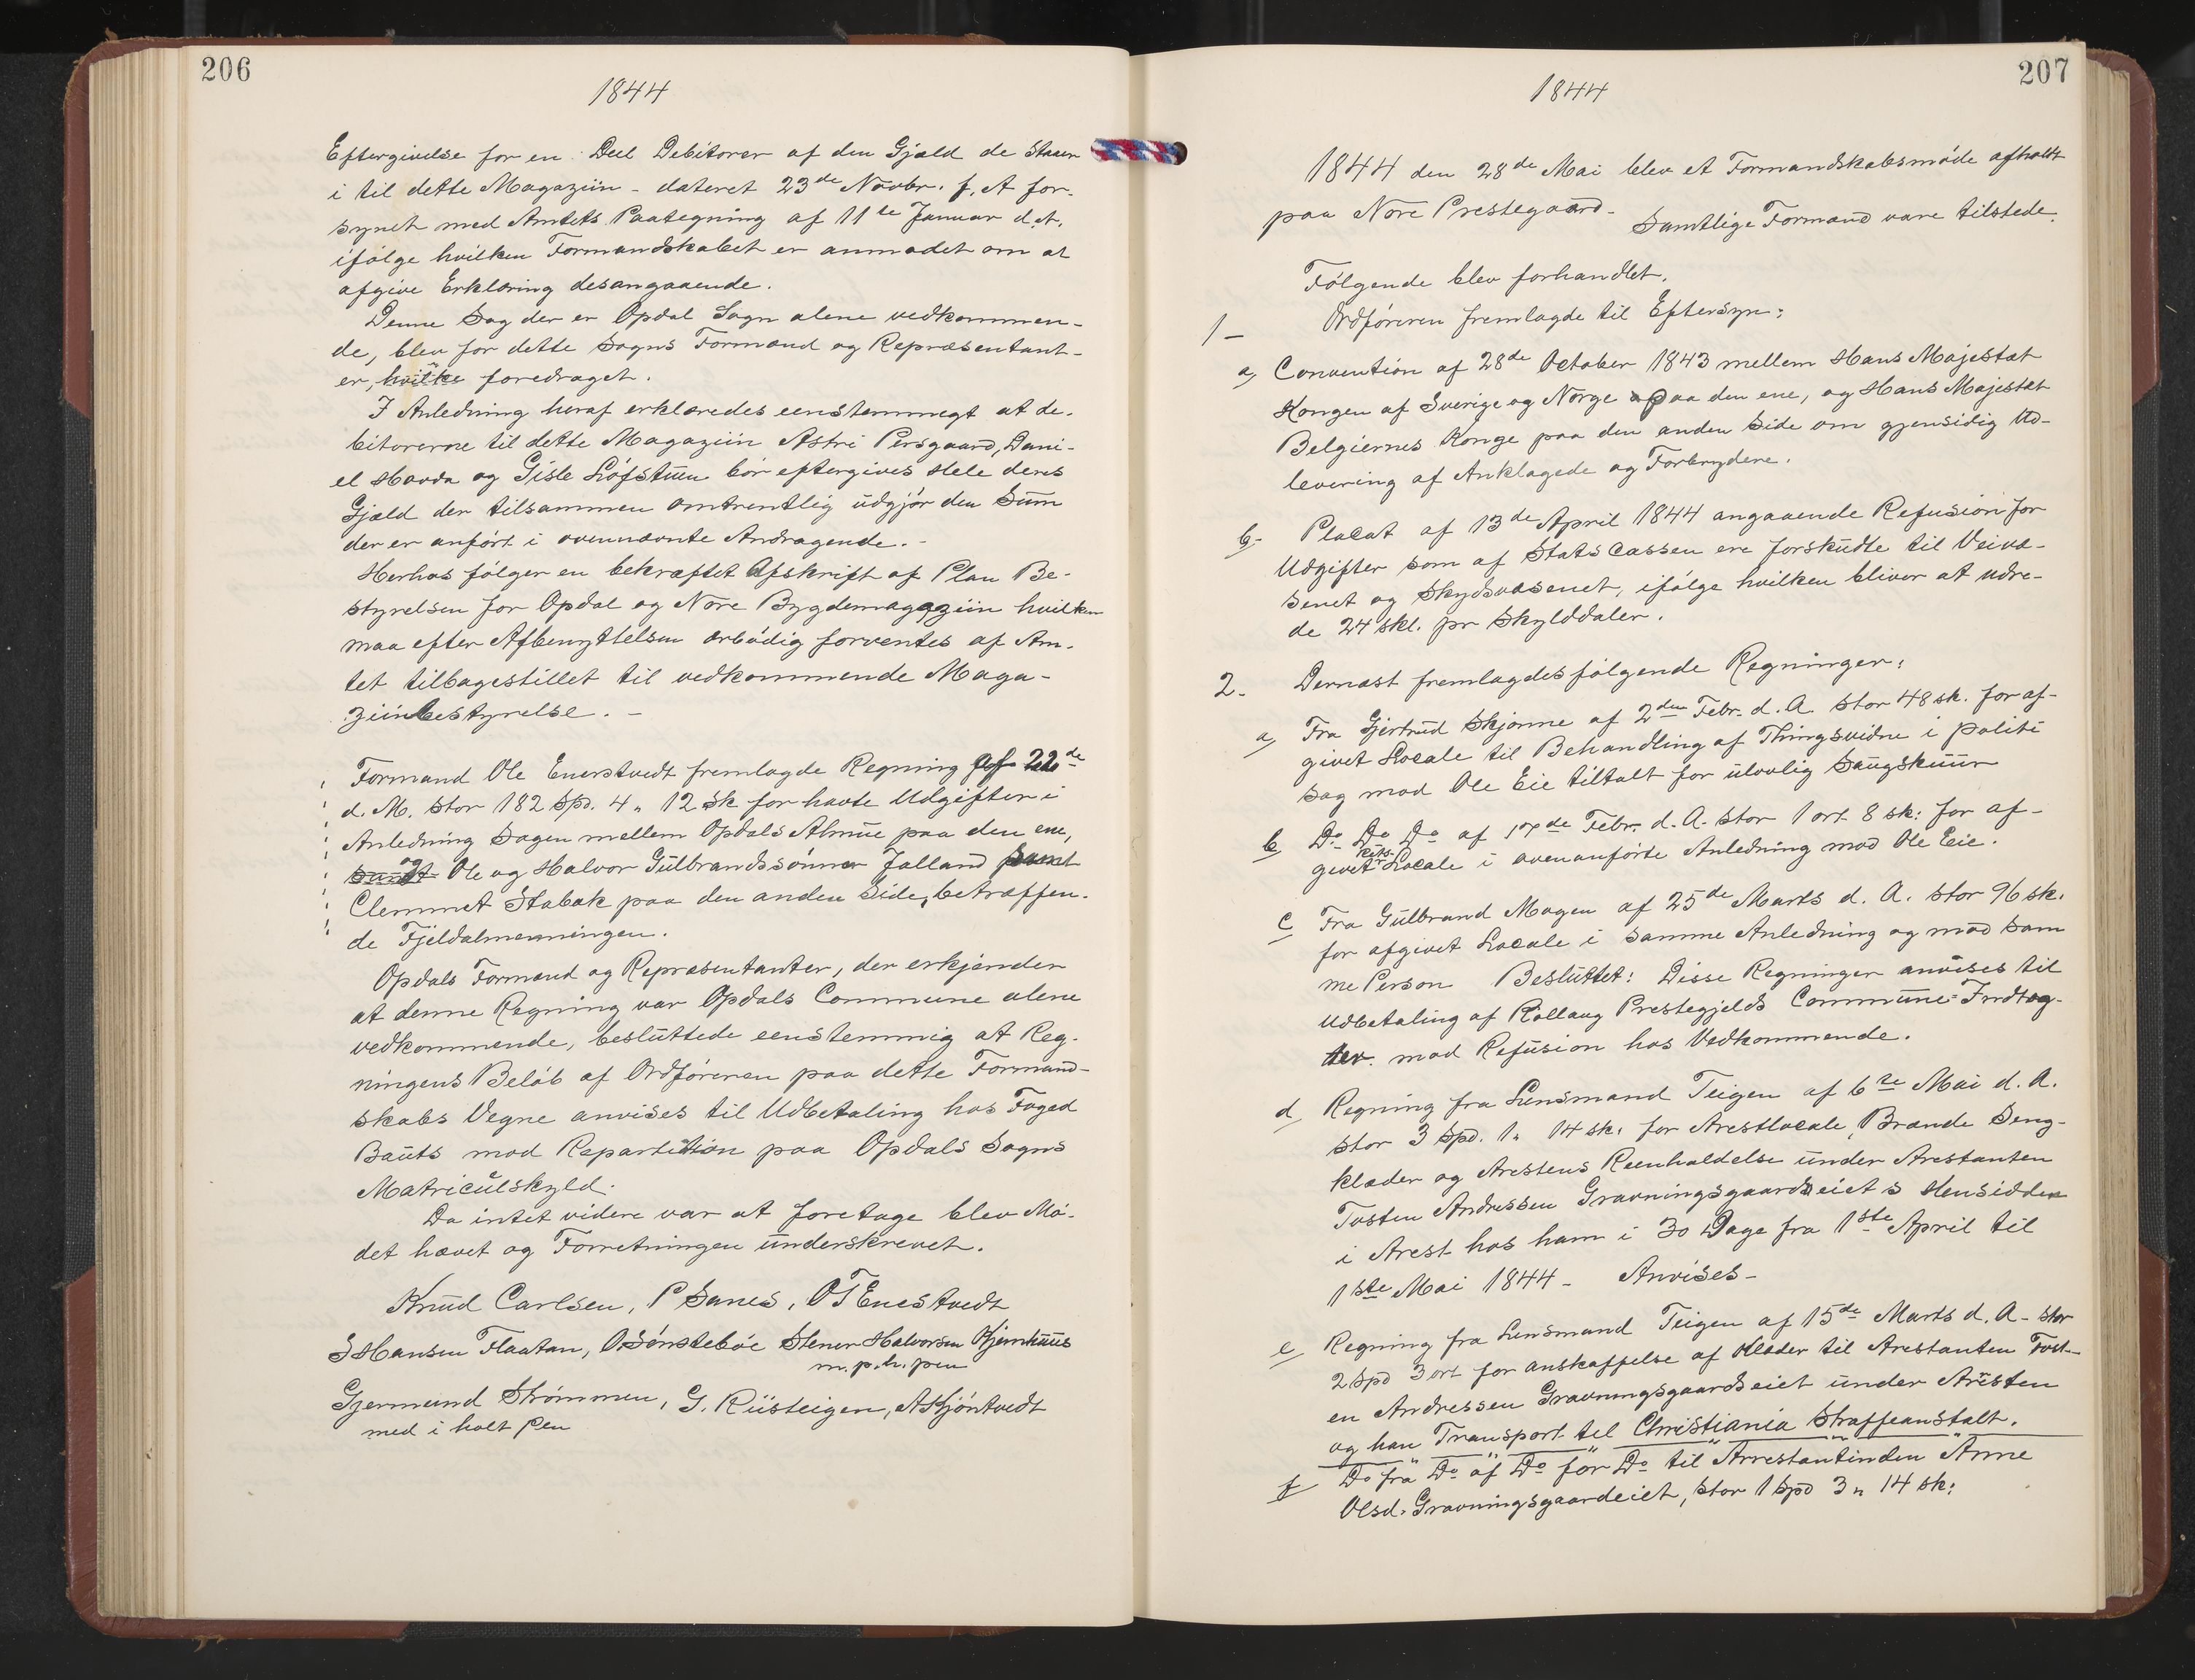 206
1844
Eftergivelse for en Deel Debitorer af den Gjæld de staaer
i til dette Magaziin - dateret 23de Novbr. f. A for-
synet med Amtets Paategning af 11te Januar d.A.
ifølge hvilken Formandskabet er anmodet om at
afgive Erklæring desangaaende.
Denne Sag der er Opdal Sogn alene vedkommen-
de, blev for dette Sogns Formænd og Repræsentant-
er, hvilke foredraget.
I Anledning heraf erklæredes eenstemmigt at de-
bitorerne til dette Magaziin Astri Persgaard, Dani-
el Hovda og Gisle Løfstuen bør eftergives Hele deres
Gjæld der tilsammen omtrentlig udgjør den Sum
der er anført i ovennævnte Andragende. -
Herhos følger en bekræftet Afskrift af Plan Be-
styrelsen for Opdal og Nore Bygdemagaziin hvilken
maa efter Afbenyttelsen ærbødig forventes af Am-
tet tilbagestillet til vedkommende Maga-
ziinbestyrelse. -
Formand Ole Enerstvedt fremlagde Regning af 22de
d. M. stor 182 Spd. 4 " 12 sk for havte Udgifter i
Anledning Sagen mellem Opdals Almue paa den ene,
samt og Ole og Halvor Gulbrandssønner Jalland samt
Clemmet Stabæk paa den anden Side, betræffen-
de Fjeldalmenningen.
Opdals Formænd og Repræsentanter, der erkjender
at denne Regning var Opdals Commune alene
vedkommende, besluttede eenstemmig at Reg-
ningens Beløb af Ordføreren paa dette Formand-
skabs Vegne anvises til Udbetaling hos Foged
Bauts mod Repartition paa Opdals Sogns
Matriculskyld.
Da intet videre var at foretage blev Mø-
det hævet og Forretningen underskrevet.
Knud Carlsen, P Sanes, O T Enestvedt
S Hansen Flaatan, O Sønstebøe Stener Halvorsen Hjemhuus
m. p. h. pen
Gjermund Strømmen, G. Ruusteigen, A Kjøntvedt
med i holt Pen
207
1844
1844 den 28de Mai blev et Formandskabsmøde afholdt
paa Nore Prestegaard. Samtlige Formænd vare tilstede.
Følgende blev forhandlet.
1- Ordføreren fremlagde til Eftersyn:
a, Convention af 28de October 1843 mellem Hans Majestæt
Kongen af Sverige og Norge paa den ene, og Hans Majestæt
Belgiernes Konge paa den anden Side om gjensidig Ud-
levering af Anklagede og Forbrydere.
b- Placat af 13de April 1844 angaaende Refusion for
Udgifter som af Stats Cassen ere forskudte til Veivæ-
senet og Skydsvæsenet, ifølge hvilken bliver at udre-
de 24 skl. pr Skylddaler.
2. Dernæst fremlagdes følgende Regninger:
a, Fra Gjertrud Skjønne af 2den Febr. d. A. stor 48 sk. for af-
givet Locale til Behandling af Thingsvidne i politi
sag mod Ole Eie tiltalt for ulovlig Saugskuur
b Do Do Do af 17de Febr. d. A. stor 1 ort 8 sk: for af-
givet Rets-Locale i ovenanførte Anledning mod Ole Eie.
c Fra Gulbrand Mogen af 25de Marts d. A. stor 96 sk.
for afgivet Locale i samme Anledning og mod sam
me Person Besluttet: Disse Regninger anvises til
Udbetaling af Rollaug Prestegjelds Commune-Indtæg-
ter mod Refusion hos Vedkommende.
d Regning fra Lensmand Teigen af 6te Mai d. A.
stor 3 Spd. 1 " 14 sk. for Arestlocale, Brænde Seng-
klæder og Arestens Reenholdelse under Arestanten
Tosten Andressen Gravningsgaardseiets Hensidden
i Arest hos ham i 30 Dage fra 1ste April til
1ste Mai 1844 - Anvises -
e, Regning fra Lensmand Teigen af 15de Marts d. A. stor
2 Spd 3 ort for anskaffelse af Klæder til Arestanten Tost-
en Andressen Gravningsgaardseiet under Aresten
og han Transport til Christiania Straffeanstalt.
f Do fra Do af Do for Do til Arrestantinden Anne
Olsd. Gravningsgaardeiet, stor 1 Spd 3 " 14 sk: